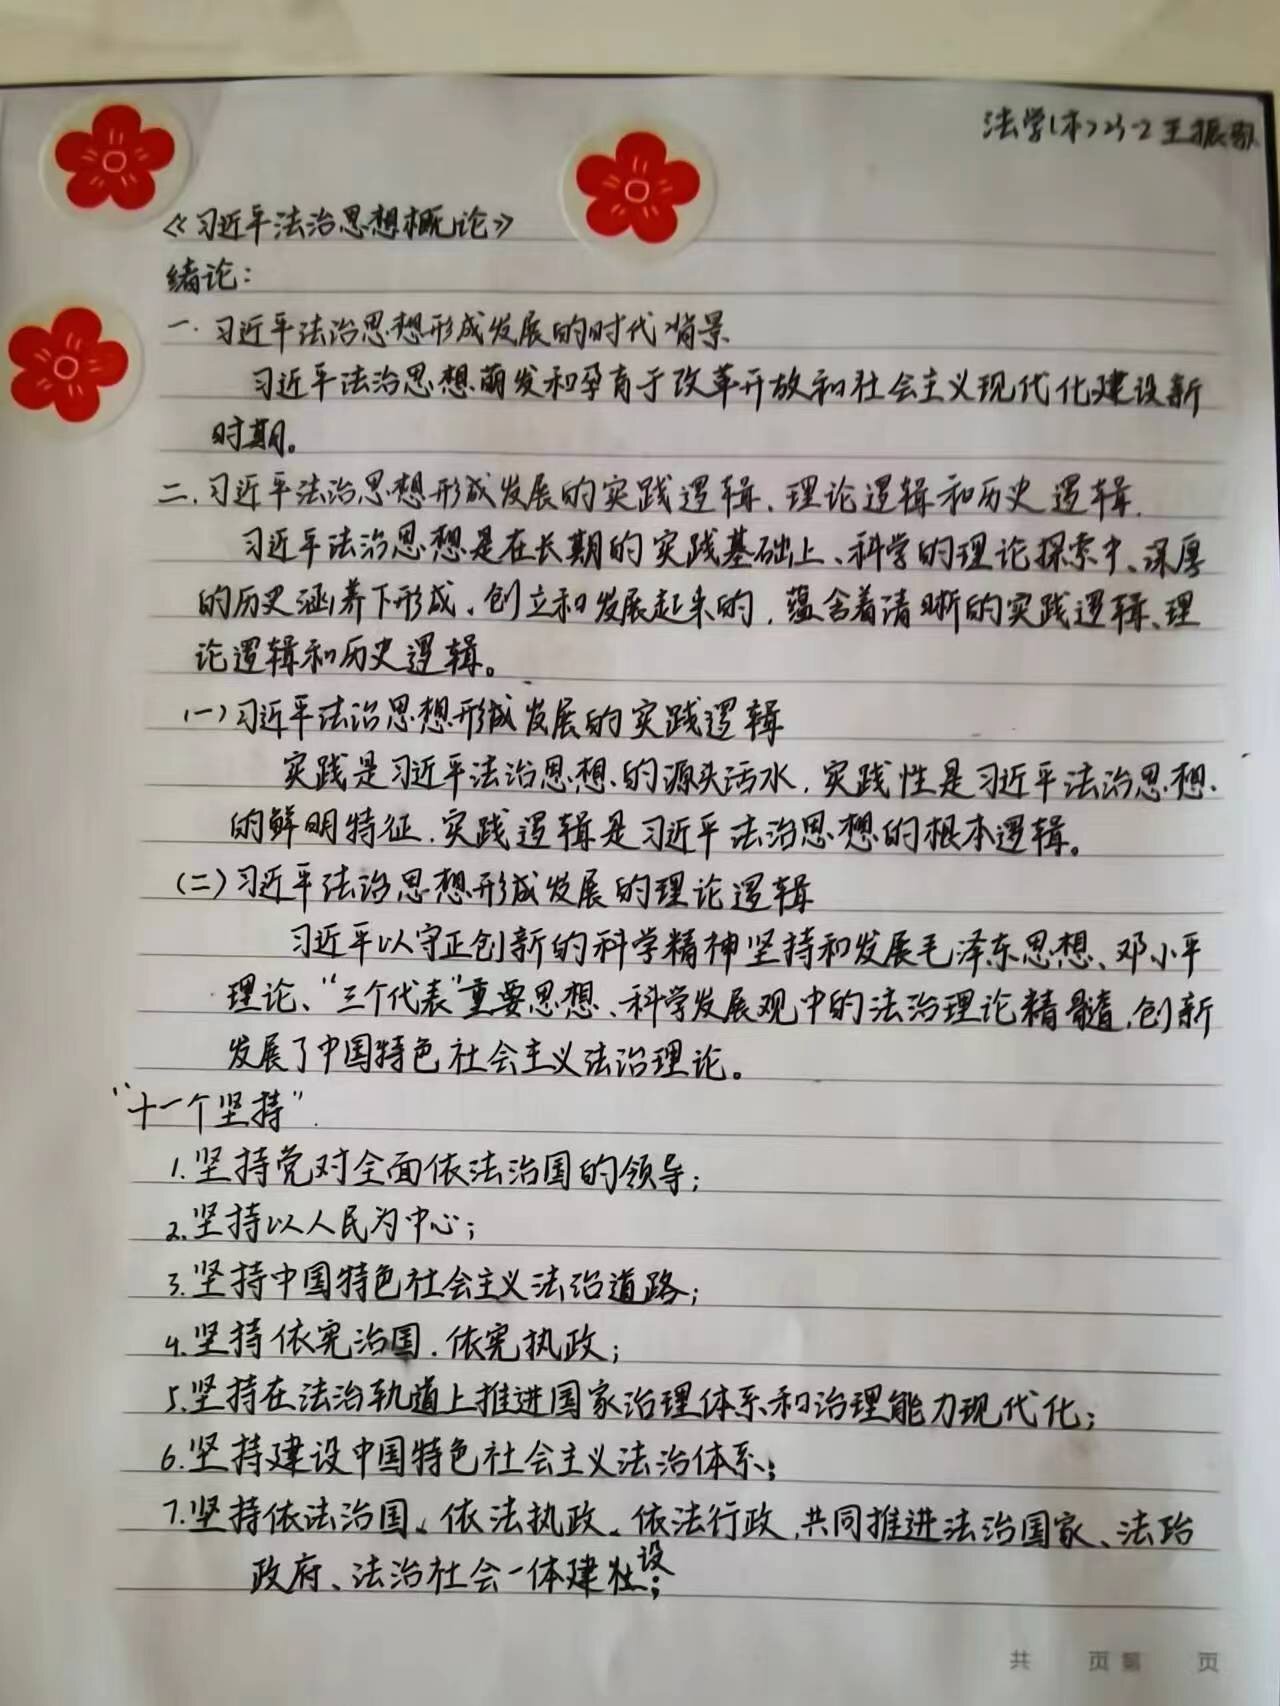 法学(本)23-2 王振歌
《习近平法治思想概论》
绪论:
一.习近平法治思想形成发展的时代背景
习近平法治思想萌发和孕育于改革开放和社会主义现代化建设新
时期。
二.习近平法治思想形成发展的实践逻辑、理论逻辑和历史逻辑.
习近平法治思想是在长期的实践基础上、科学的理论探索中、深厚
的历史涵养下形成、创立和发展起来的,蕴含着清晰的实践逻辑、理
论逻辑和历史逻辑。
(一)习近平法治思想形成发展的实践逻辑
实践是习近平法治思想的源头活水,实践性是习近平法治思想
的鲜明特征,实践逻辑是习近平法治思想的根本逻辑。
(二)习近平法治思想形成发展的理论逻辑
习近平以守正创新的科学精神坚持和发展毛泽东思想、邓小平
理论、“三个代表”重要思想、科学发展观中的法治理论精髓,创新
发展了中国特色社会主义法治理论。
“十一个坚持”.
1.坚持党对全面依法治国的领导;
2.坚持以人民为中心;
3.坚持中国特色社会主义法治道路;
4.坚持依宪治国、依宪执政;
5.坚持在法治轨道上推进国家治理体系和治理能力现代化;
6.坚持建设中国特色社会主义法治体系;
7.坚持依法治国、依法执政、依法行政,共同推进法治国家、法治
政府、法治社会一体建设;
共 页 第 页